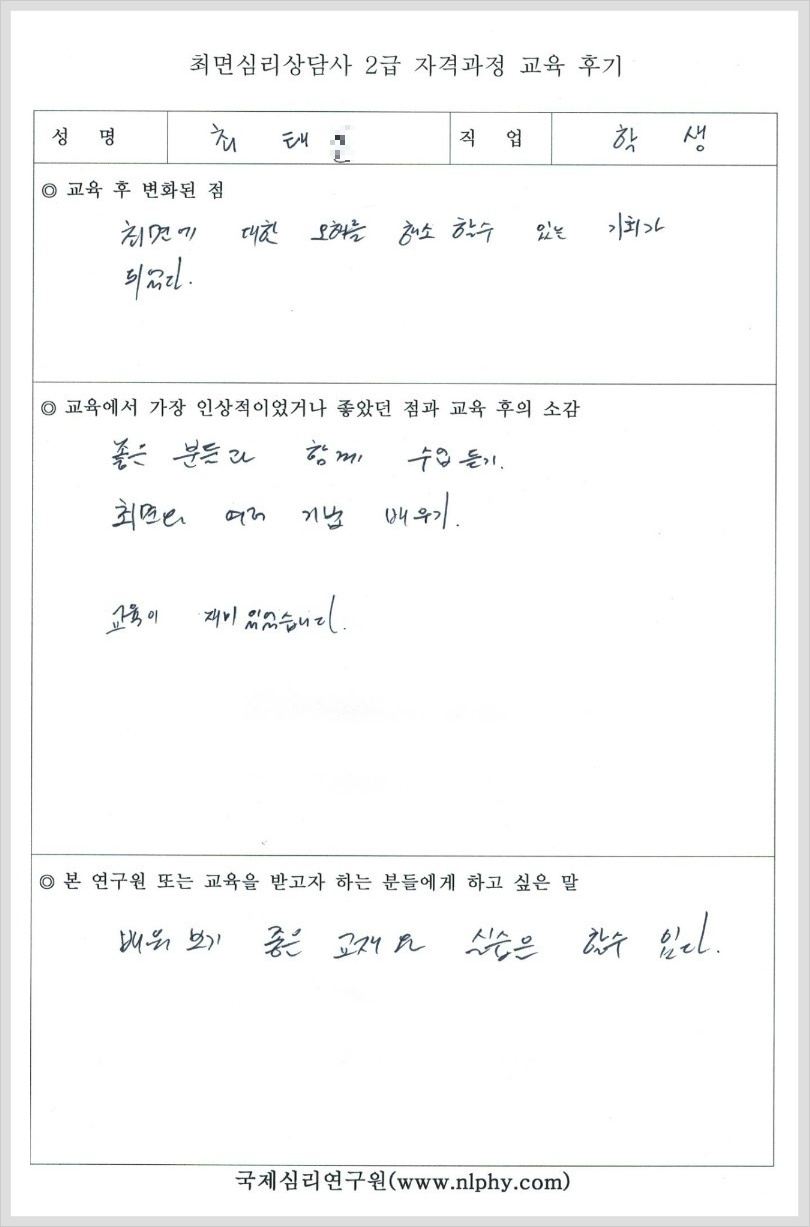 최면심리상담사 2급 자격과정 교육 후기
성 명 최 태 직 업 학 생
◎ 교육 후 변화된 점
최면에 대한 오해를 해소 할수 있는 기회가
되었다.
◎ 교육에서 가장 인상적이었거나 좋았던 점과 교육 후의 소감
좋은 분들과 함께 수업 듣기.
최면의 여러 기법 배우기.
교육이 재미 있었습니다.
◎ 본 연구원 또는 교육을 받고자 하는 분들에게 하고 싶은 말
배워 보기 좋은 교재와 실습은 할수 있다.
국제심리연구원(www.nlphy.com)